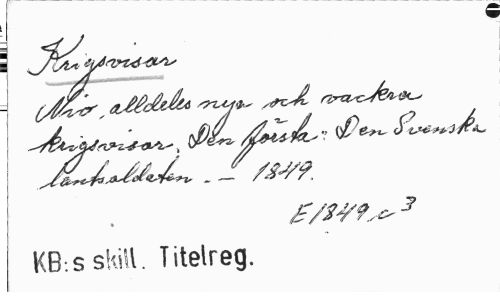 Krigsvisor
Nio, alldeles nya och vackra
krigsvisor. Den första: Den Svenska
lantsoldaten. – 1849.
E 1849 c 3
KB:s skill. Titelreg.